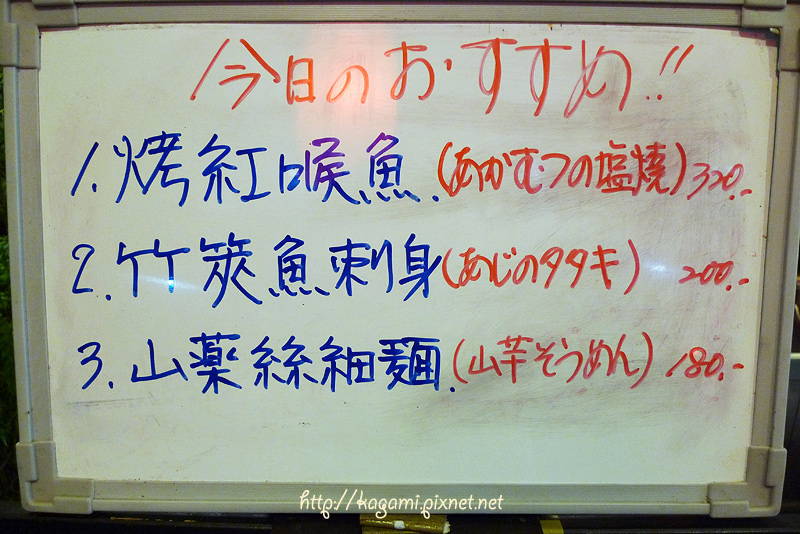 今日のおすすめ!!
1.烤紅喉魚.(あかむつの塩焼)320.-
2.竹筴魚刺身(あじのタタキ) 200.-
3.山薬絲細麵.(山芋そうめん) 180.-
http://kagami.pixnet.net